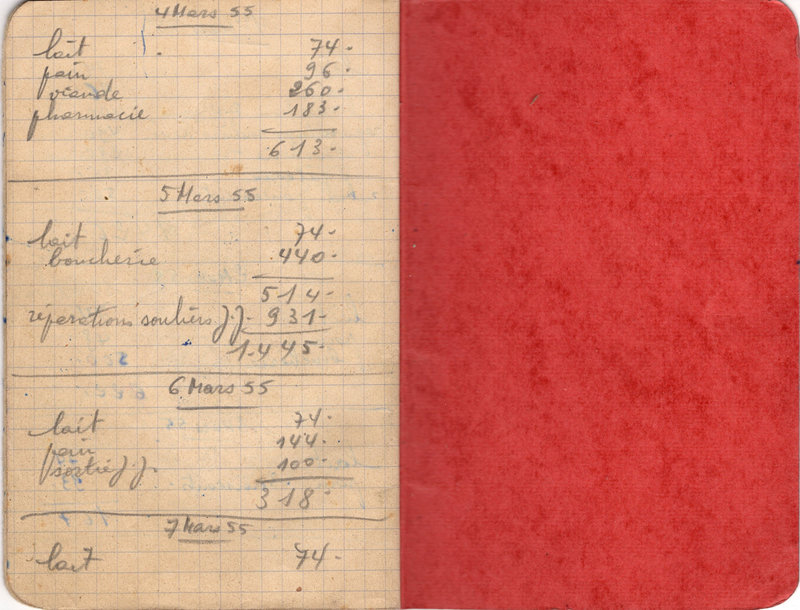 4 Mars 55
lait 74-
pain 96-
viande 260-
pharmacie 183-
613-
5 Mars 55
lait 74-
boucherie 440-
514-
réparations souliers J.J. 931-
1.445-
6 Mars 55
lait 74-
pain 144-
sortie J.J. 100-
318-
7 Mars 55
lait 74-